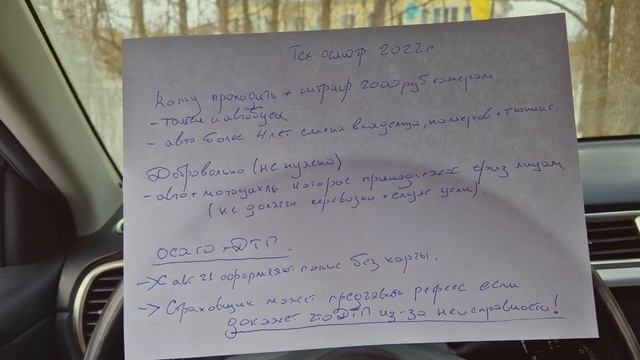 Тех осмотр 2022г
Кому проходить + штраф 2000 руб камерам
- такси и автобусы
- авто более 4 лет смена владельца, номеров + тюнинг.
Добровольно (не нужно)
- авто + мотоциклы которые принадлежат физ лицам
(не должен перевозки + служ цели).
ОСАГО + ДТП:
→ С авг 21 оформляют полис без карты.
→ Страховщик может предъявить регресс если
докажет что ДТП из-за неисправности!